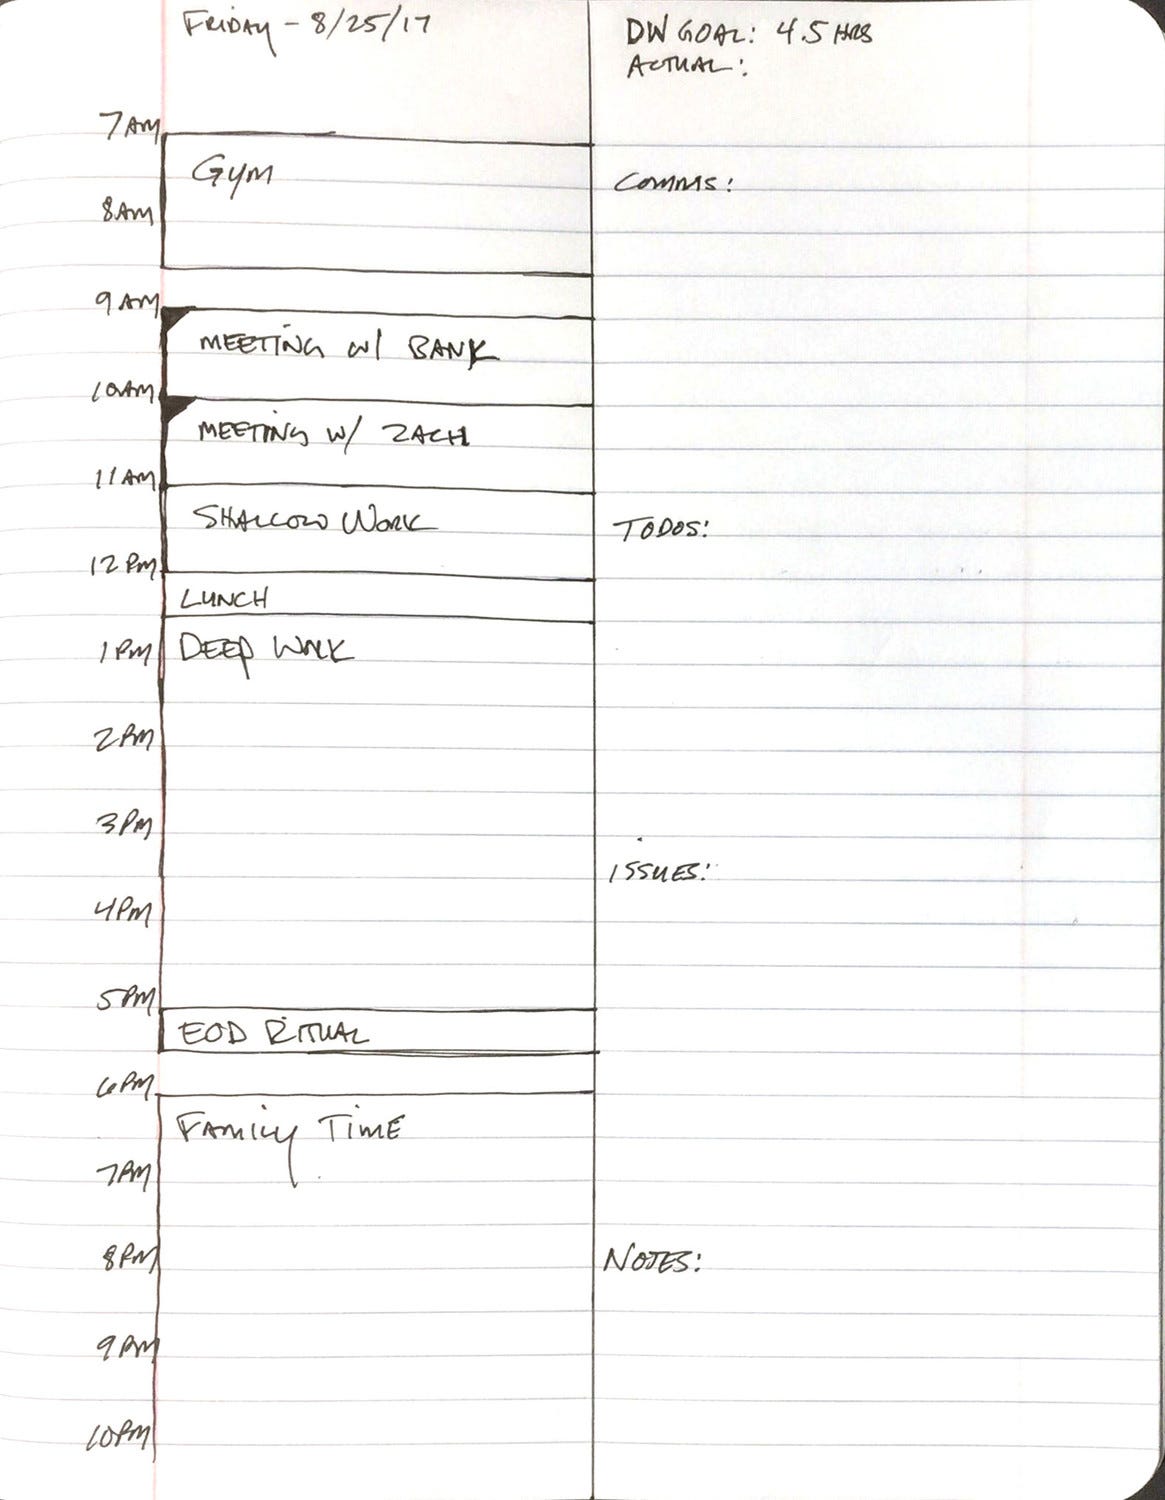 FRIDAY - 8/25/17
DW GOAL: 4.5 HRS
ACTUAL:
7AM
GYM
COMMS:
8AM
9AM
MEETING W/ BANK
10AM
MEETING W/ ZACH
11AM
SHALLOW WORK
TODOS:
12PM
LUNCH
1PM
DEEP WORK
2PM
3PM
ISSUES:
4PM
5PM
EOD RITUAL
6PM
FAMILY TIME
7PM
8PM
NOTES:
9PM
10PM